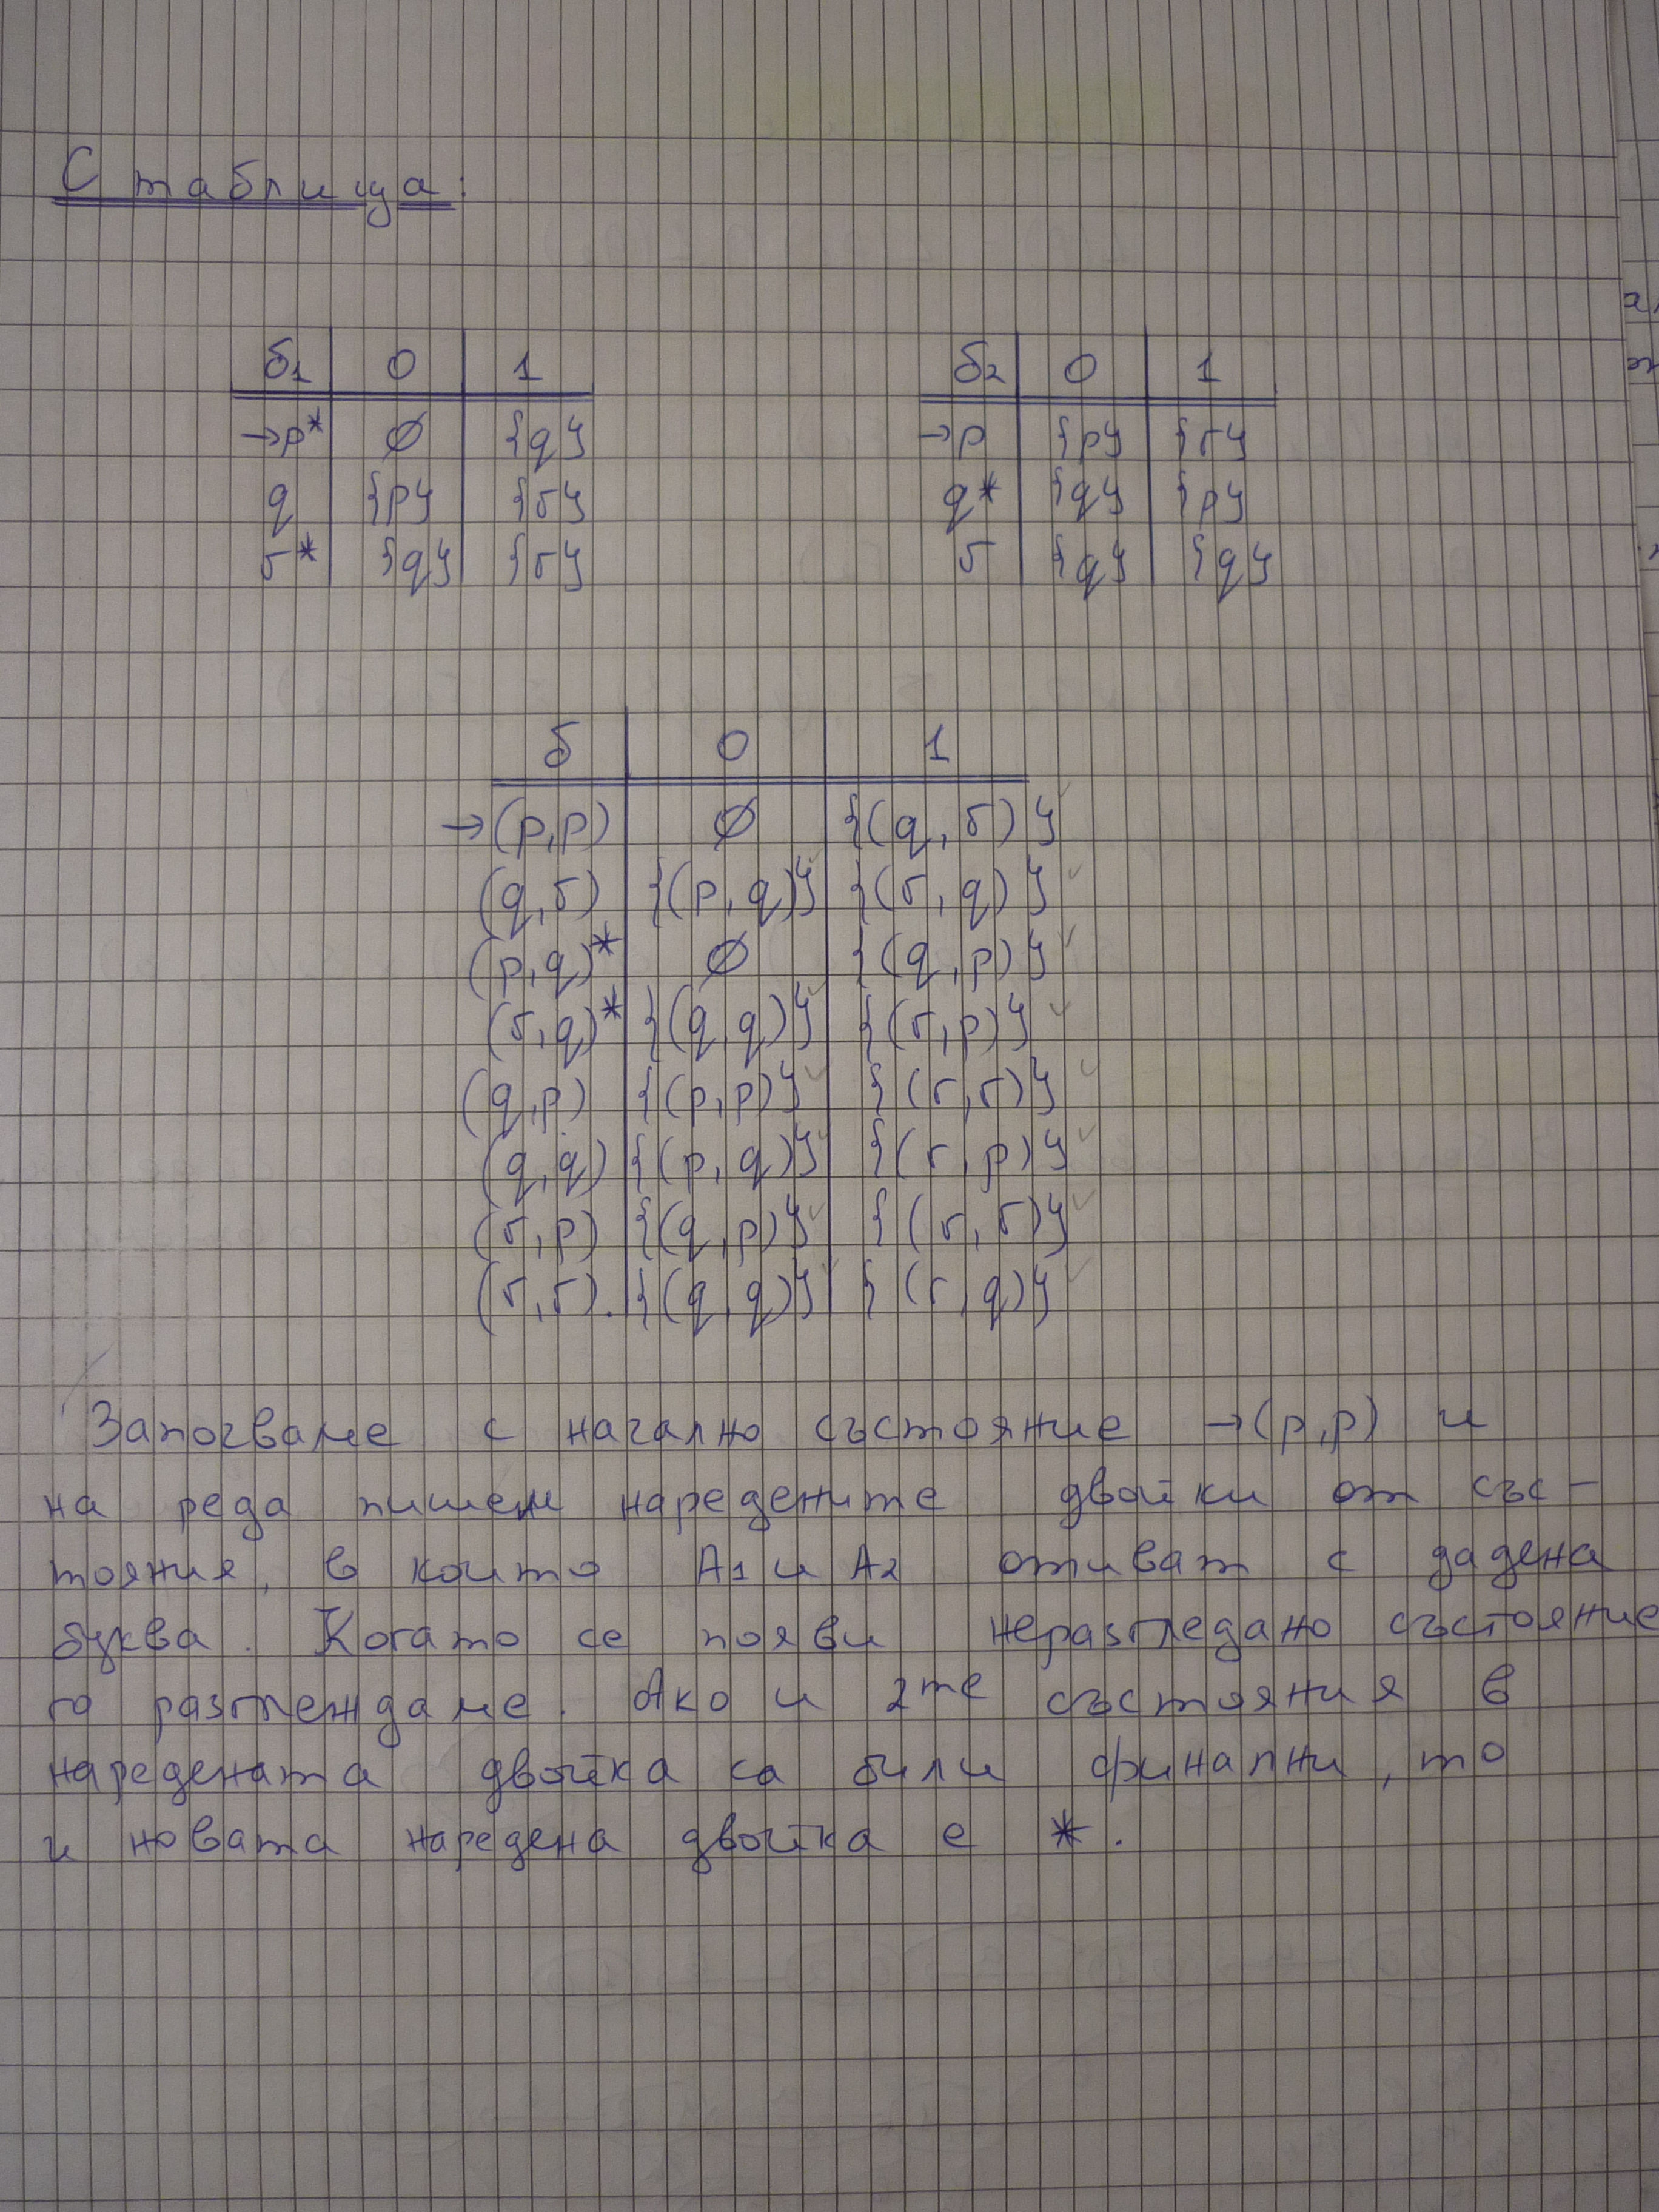 С таблица:
δ1 0 1
→p* ∅ {q}
q {p} {r}
r* {q} {r}
δ2 0 1
→p {p} {r}
q* {q} {p}
r {q} {q}
δ 0 1
→(p,p) ∅ {(q,r)}
(q,r) {(p,q)} {(r,q)}
(p,q)* ∅ {(q,p)}
(r,q)* {(q,q)} {(r,p)}
(q,p) {(p,p)} {(r,r)}
(q,q) {(p,q)} {(r,p)}
(r,p) {(q,p)} {(r,r)}
(r,r). {(q,q)} {(r,q)}
Започваме с начално състояние →(p,p) и
на реда пишем наредените двойки от със-
тояния, в които A1 и A2 отиват с дадена
буква. Когато се появи неразгледано състояние
го разглеждаме. Ако и 2те състояния в
наредената двойка са били финални, то
и новата наредена двойка е *.